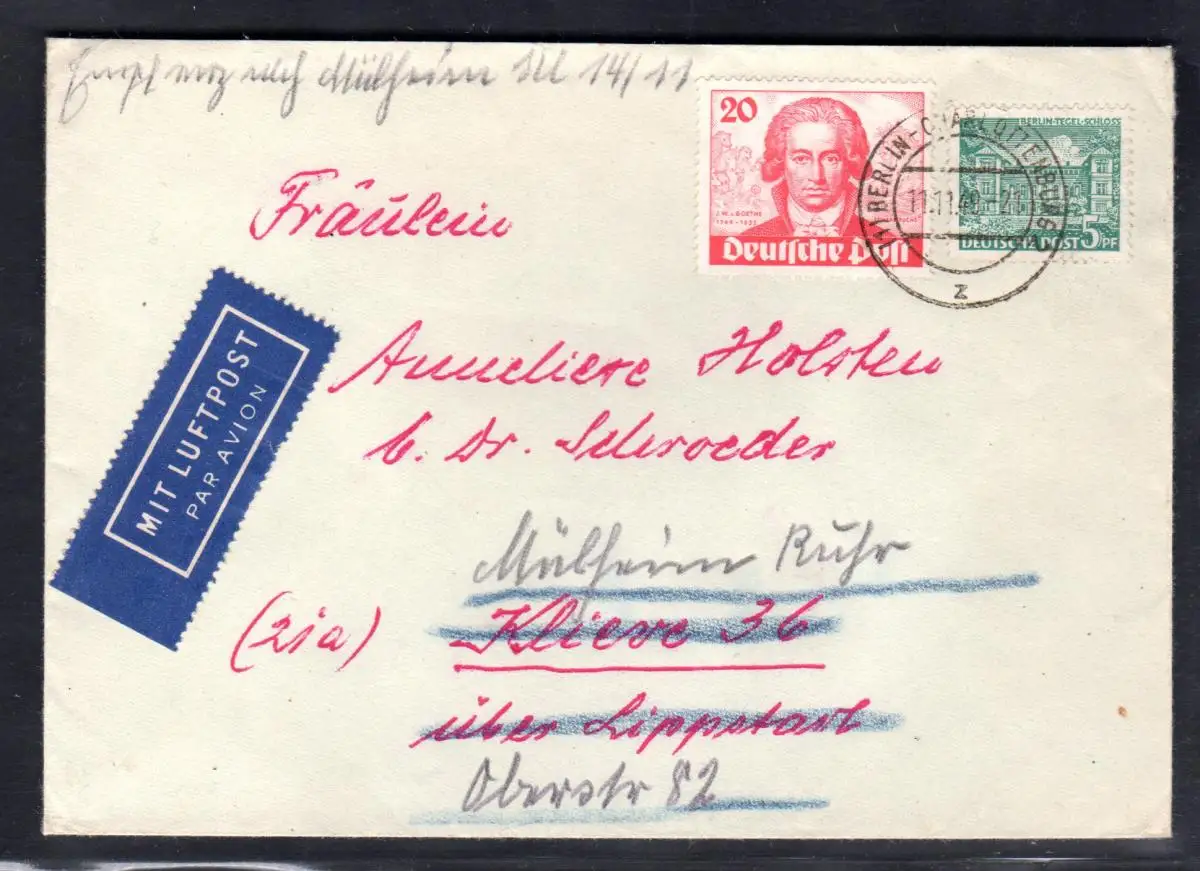 Empf verz nach Mülheim 14/11
20
J.W.v.GOETHE
1749-1832
Deutsche Post
BERLIN-TEGEL-SCHLOSS
DEUTSCHE POST 5 PF
BERLIN-CHARLOTTENBURG
11.11.49.-21
z
Fräulein
MIT LUFTPOST
PAR AVION
Anneliese Holsten
b. Dr. Schroeder
Mülheim Ruhr
(21a) Klieve 36
über Lippstadt
Oberstr 82